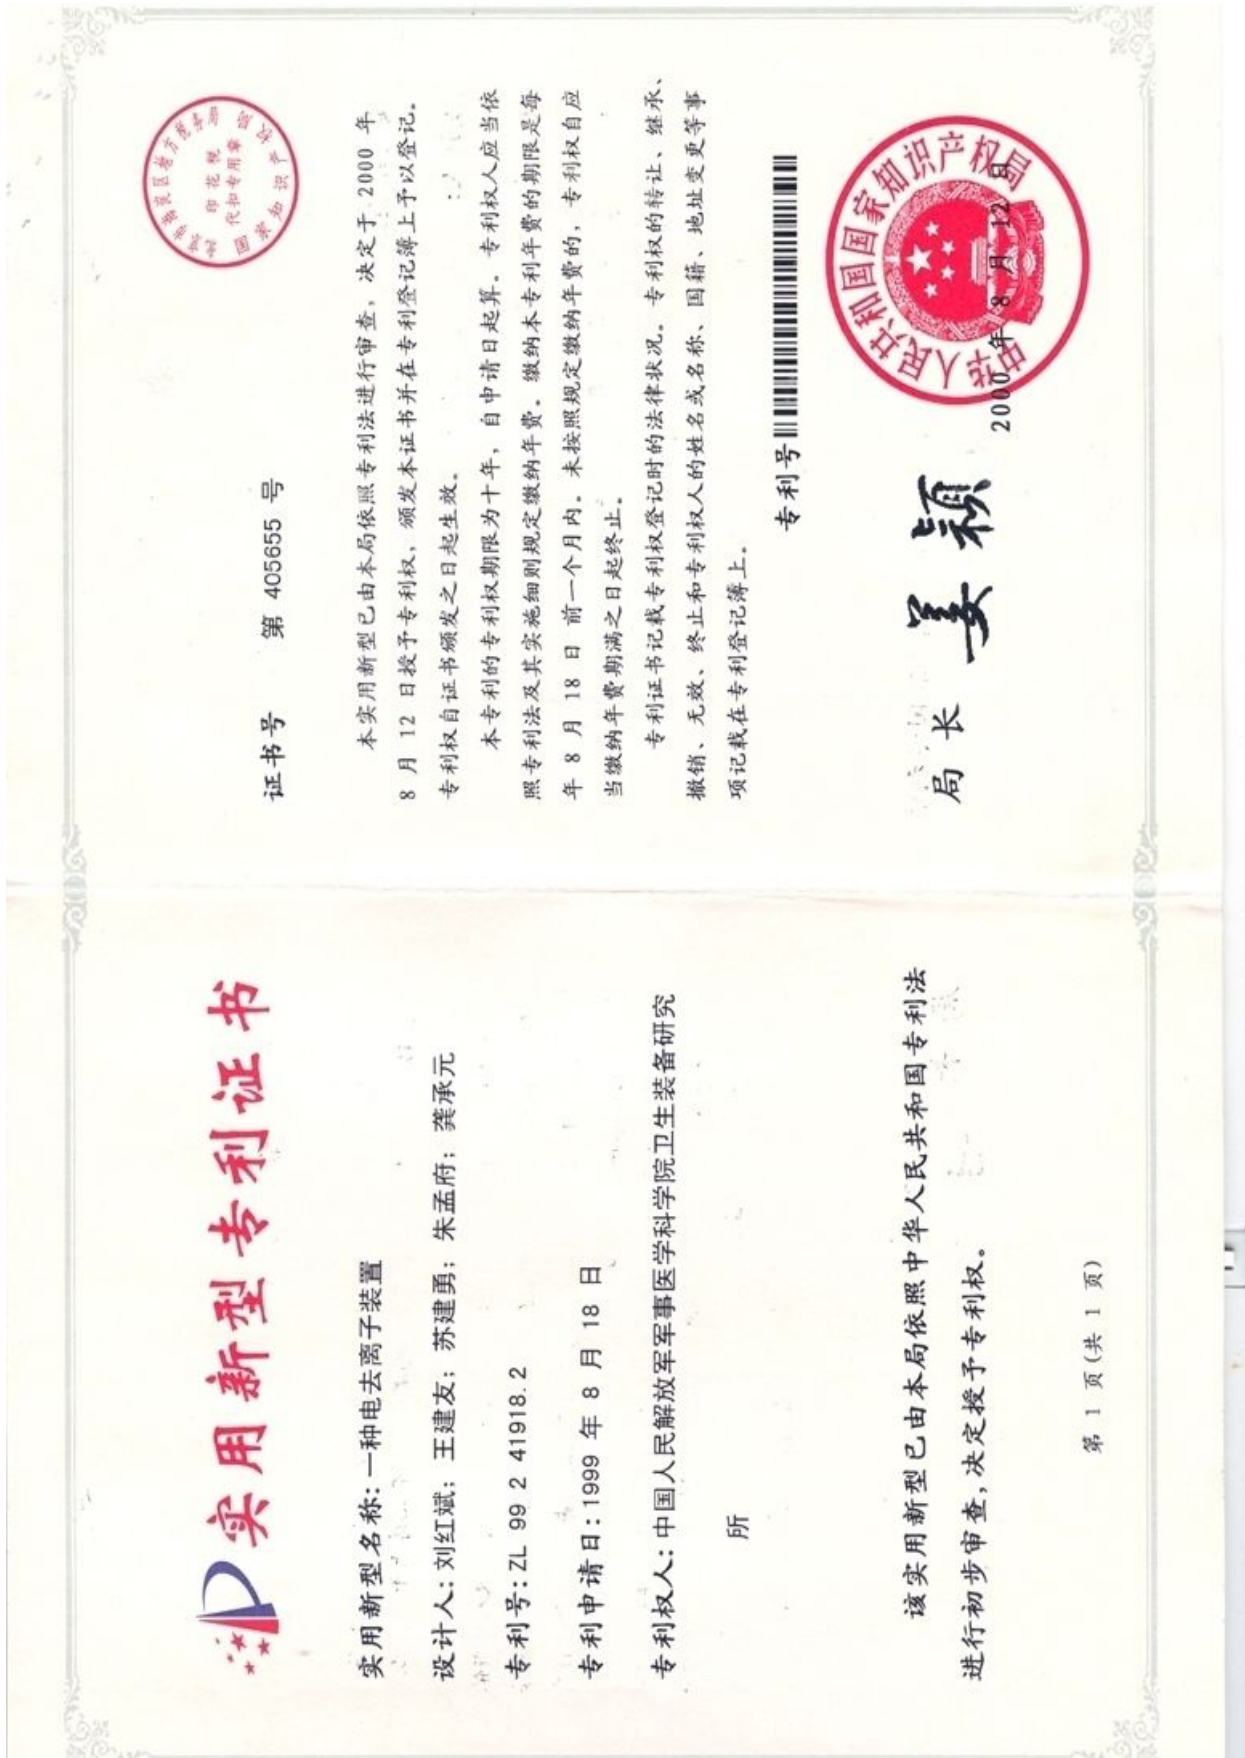 实用新型专利证书
实用新型名称:一种电去离子装置
设计人:刘红斌;王建友;苏建勇;朱孟府;龚承元
专利号:ZL 99 2 41918.2
专利申请日:1999 年 8 月 18 日
专利权人:中国人民解放军军事医学科学院卫生装备研究
所
该实用新型已由本局依照中华人民共和国专利法
进行初步审查,决定授予专利权。
第 1 页(共 1 页)
证书号 第 405655 号
本实用新型已由本局依照专利法进行审查,决定于 2000 年
8 月 12 日授予专利权,颁发本证书并在专利登记簿上予以登记。
专利权自证书颁发之日起生效。
本专利的专利权期限为十年,自申请日起算。专利权人应当依
照专利法及其实施细则规定缴纳年费。缴纳本专利年费的期限是每
年 8 月 18 日 前一个月内。未按照规定缴纳年费的,专利权自应
当缴纳年费期满之日起终止。
专利证书记载专利权登记时的法律状况。专利权的转让、继承、
撤销、无效、终止和专利权人的姓名或名称、国籍、地址变更等事
项记载在专利登记簿上。
专利号
局长 姜颖
2000 年 8 月 12 日
中华人民共和国国家知识产权局
印花税
代扣专用章
国家知识产权局